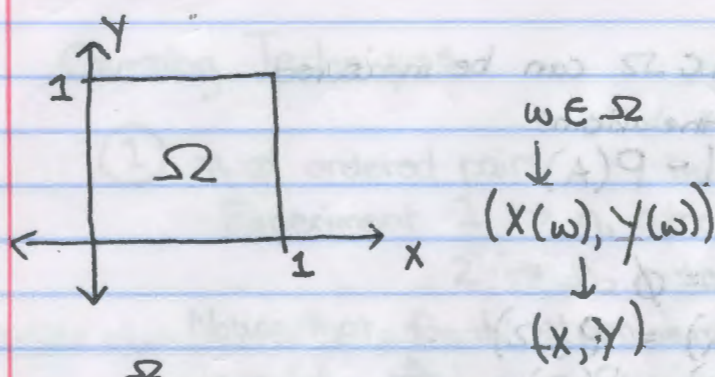 Y
1
Ω
1
X
ω ∈ Ω
↓
(X(ω), Y(ω))
↓
(X, Y)